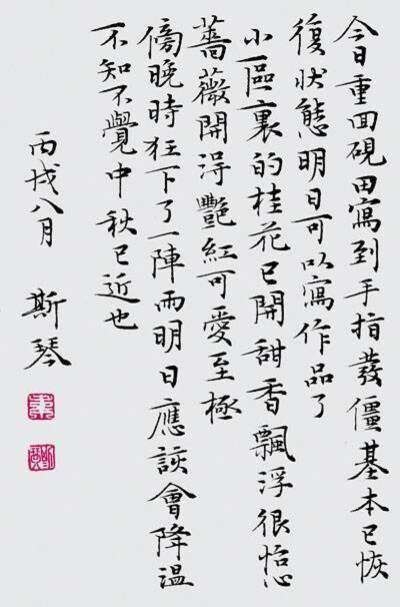 今日重面硯田寫到手指發僵基本已恢
復狀態明日可以寫作品了
小區裏的桂花已開甜香飄浮很怡心
薔薇開得艷紅可愛至極
傍晚時狂下了一陣雨明日應該會降溫
不知不覺中秋已近也
丙戌八月 斯琴